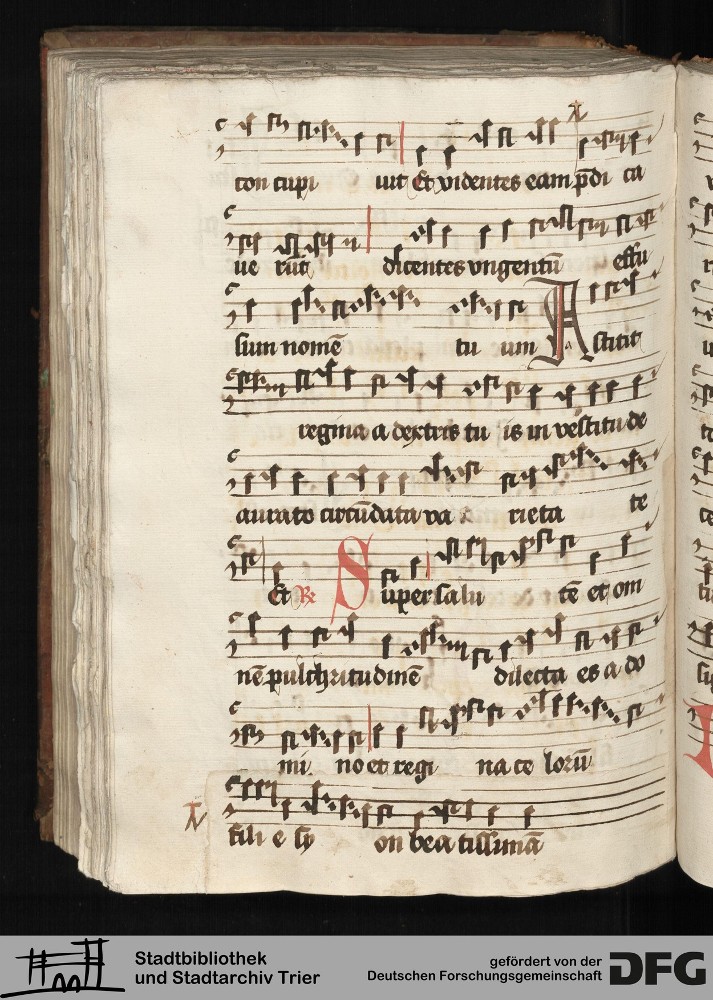 con cupi uit Et videntes eam p̄di ca
ue rūt dicentes vngentū effu
sum nomē tu um Astitit
regina a dextris tu is in vestitu de
aurato circūdata va rieta te
Et R̄ Super salu tē et om
nē pulchritudinē dilecta es a do
mi no et regi na ce lorū
fili e sy on bea tissimā
Stadtbibliothek
und Stadtarchiv Trier
gefördert von der
Deutschen Forschungsgemeinschaft
DFG